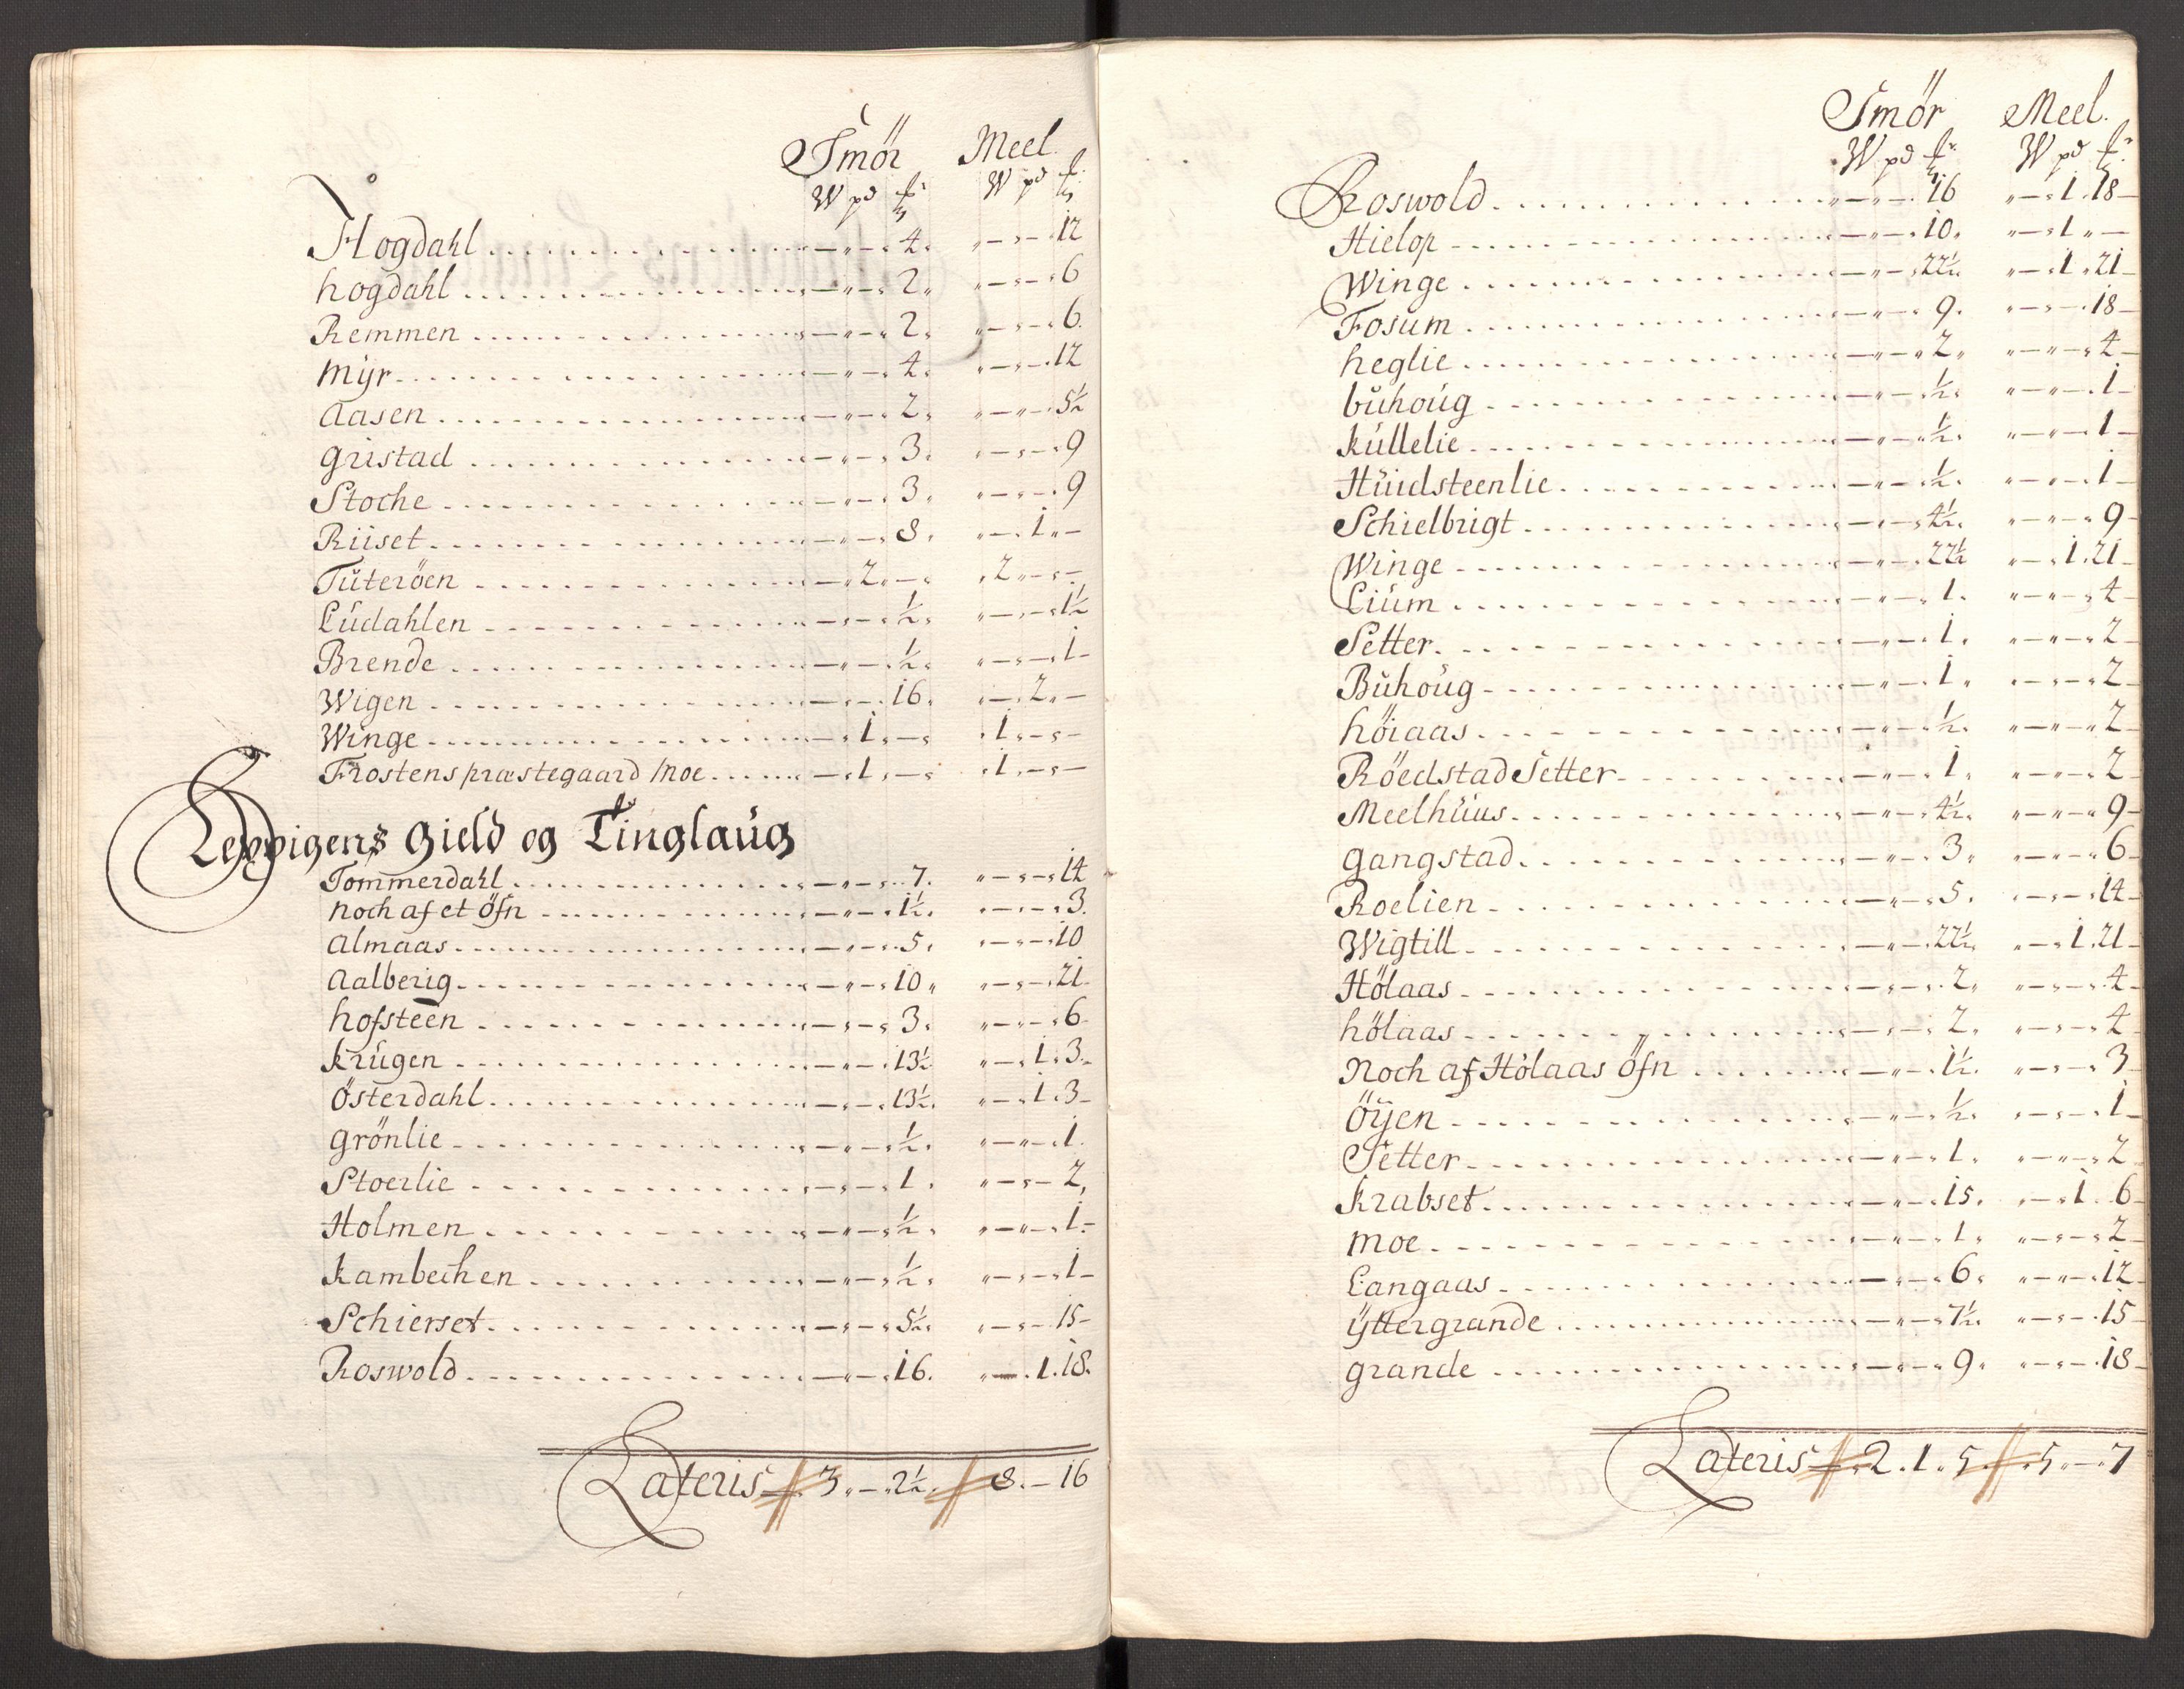 Smör Meel
W pd ℔ W pd ℔
Hogdahl - „ - 4 „ - „ - 12
hogdahl - „ - 2 „ - „ - 6
Remmen - „ - 2 „ - „ - 6
Mÿr - „ - 4 „ - „ - 12
Aasen - „ - 2 „ - „ - 5½
Gristad - „ - 3 „ - „ - 9
Stoche - „ - 3 „ - „ - 9
Riiset - „ - 8 „ - 1 „ -
Tuteröen - 2 „ - „ 2 „ - „ -
Ludahlen - „ - ½ „ - „ - 1½
Brende - „ - ½ „ - „ - 1 -
Wigen - „ - 16 „ - 2 „ -
Winge - 1 „ - „ 1 „ - „ -
Frostens præstegaard Moe - 1 „ - „ 1 „ - „ -
Lexvigens Gield og Tinglaug
Tommerdahl - „ - 7 „ - „ - 14
Noch af et öfn - „ - 1½ „ - „ - 3
Almaas - „ - 5 „ - „ - 10
Aalberig - „ - 10 „ - „ - 21
hofsteen - „ - 3 „ - „ - 6
Krugen - „ - 13½ „ - 1 „ 3
Österdahl - „ - 13½ „ - 1 „ 3
Grönlie - „ - ½ „ - „ - 1
Stoerlie - „ - 1 „ - „ - 2
Holmen - „ - ½ „ - „ - 1
Kambechen - „ - ½ „ - „ - 1
Schierset - „ - 5½ „ - „ - 15
Roswold - „ - 16 „ - 1 . 18
Lateris 3 „ - 2½ 8 . - 16
Smör Meel
W pd ℔ W pd ℔
Roswold - „ - 16 „ - 1 . 18
Hielop - „ - 10 „ - 1 „ -
Winge - „ - 22½ „ - 1 . 21
Fosum - „ - 9 „ - „ - 18
heglie - „ - 2 „ - „ - 4
buhoug - „ - ½ „ - „ - 1
Kullelie - „ - ½ „ - „ - 1
Huidsteenlie - „ - ½ „ - „ - 1
Schielbrigt - „ - 4½ „ - „ - 9
Winge - „ - 22½ „ - 1 . 21
Lium - „ - 1 „ - „ - 4
Setter - „ - 1 „ - „ - 2
Buhoug - „ - 1 „ - „ - 2
höiaas - „ - ½ „ - „ - 2
Röedstad Setter - „ - 1 „ - „ - 2
Meelhuus - „ - 4½ „ - „ - 9
Gangstad - „ - 3 „ - „ - 6
Roelien - „ - 5 „ - „ - 14
Wigtill - „ - 22½ „ - 1 . 21
Hölaas - „ - 2 „ - „ - 4
hölaas - „ - 2 „ - „ - 4
Noch af Hölaas öfn - „ - 1½ „ - „ - 3
Öÿen - „ - ½ „ - „ - 1
Setter - „ - 1 „ - „ - 2
Krabset - „ - 15 „ - 1 . 6
Moe - „ - 1 „ - „ - 2
Langaas - „ - 6 „ - „ - 12
Ÿttergrande - „ - 7½ „ - „ - 15
Grande - „ - 9 „ - „ - 18
Lateris 2 . 1 . 5 5 „ - 7